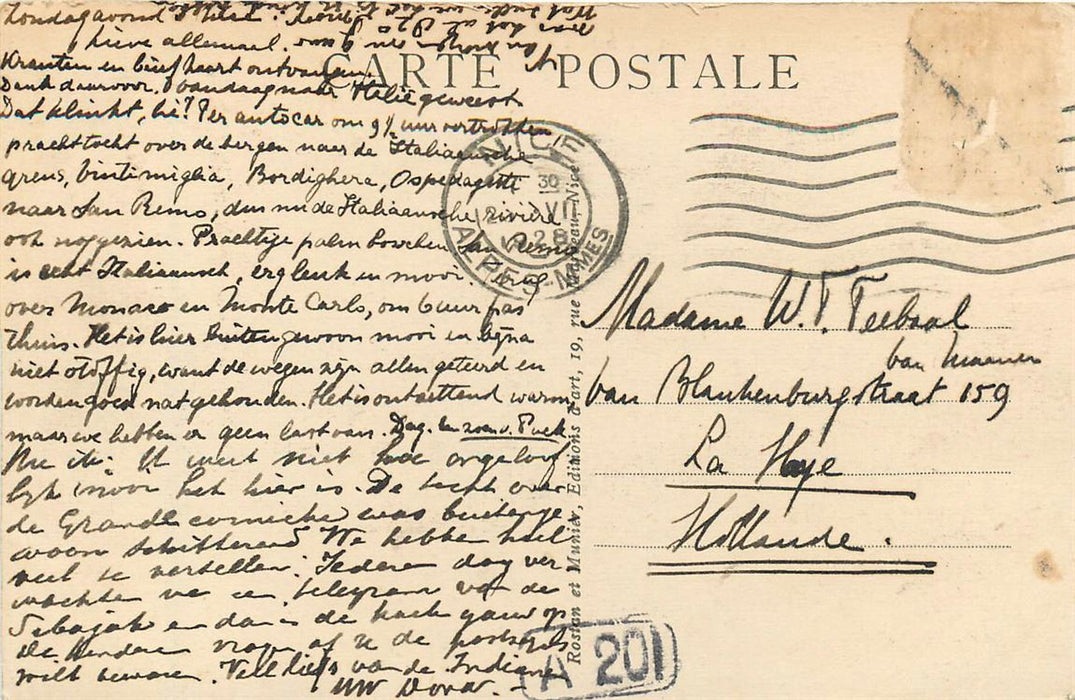 Zondagavond
lieve allemaal.
Kranten en brief haart ontvangen.
Dank daarvoor. Vandaag naar Italië geweest
Dat klinkt, hè? Per autocar om 9½ uur vertrokken
prachttocht over de bergen naar de Italiaansche
grens, Vintimiglia, Bordighera, Ospedaletti
naar San Remo, dus nu de Italiaansche rivièra
ook nog gezien. Prachtige palmboschen San Remo
is echt Italiaansch, erg leuk en mooi. Terug
over Monaco en Monte Carlo, om 6 uur pas
thuis. Het is hier buitengewoon mooi en bijna
niet stoffig, want de wegen zijn allen geteerd en
worden goed nat gehouden. Het is ontzettend warm,
maar we hebben er geen last van. Dag.
Nu ik: U weet niet hoe ongeloof
lijk mooi het hier is. De tocht over
de Grande corniche was buitenge
woon schitterend We hebben heel
veel te vertellen. Iederen dag ver
wachten we een telegram van de
Sibajak en dan is de haak gauw op
De kinderen vragen of u de postzegels
wilt bewaren. Veel liefs van de Indianen
UW Dora.-
CARTE POSTALE
NICE
30
ALPES-MMES
Rostan et Munier, Editions d'art, 19, rue Nice
Madame W. F. Teebaal
van Maanen
van Blankenburgstraat 159
La Haye
Hollande.
A 201